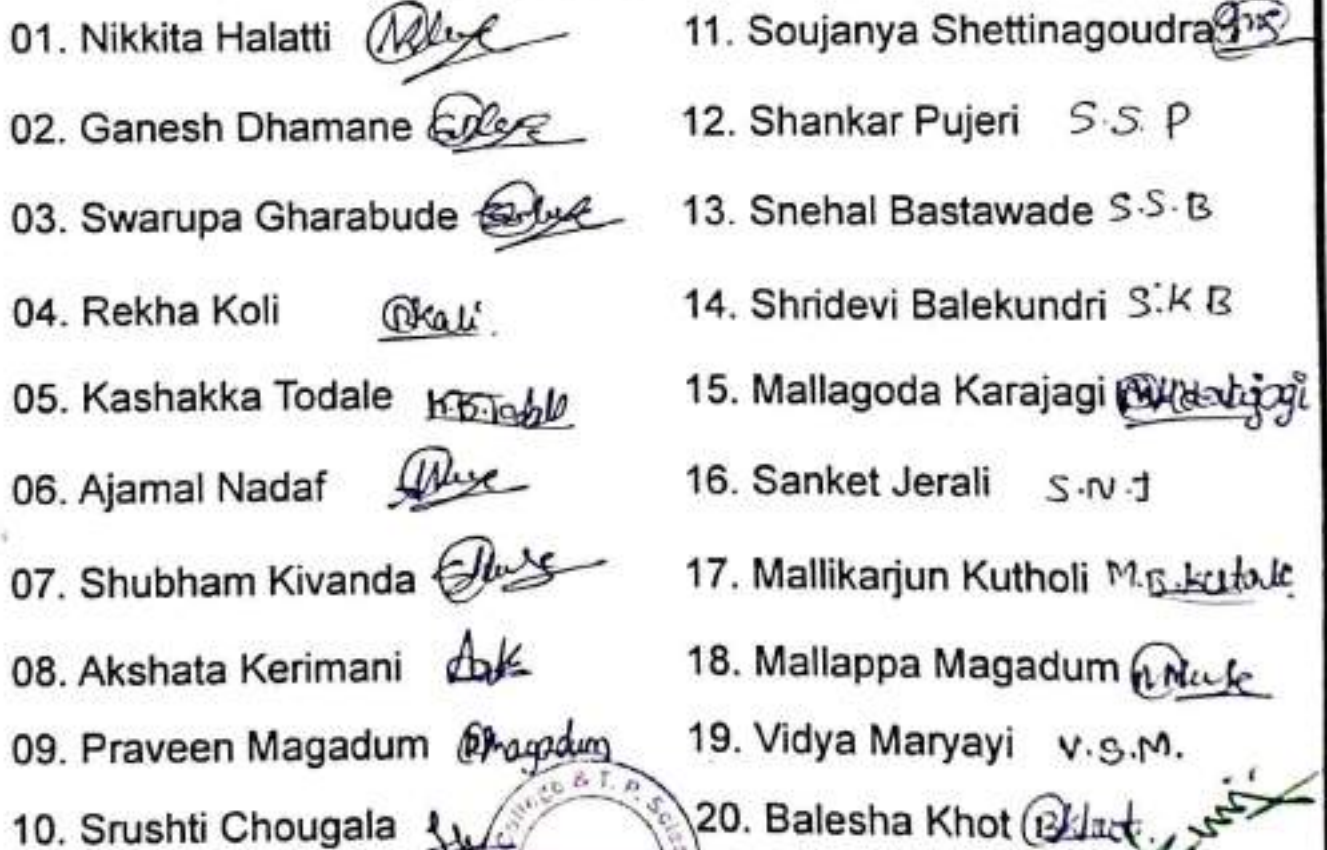 01. Nikkita Halatti
02. Ganesh Dhamane
03. Swarupa Gharabude
04. Rekha Koli
05. Kashakka Todale K.B.Todale
06. Ajamal Nadaf
07. Shubham Kivanda
08. Akshata Kerimani
09. Praveen Magadum PMagadum
10. Srushti Chougala
11. Soujanya Shettinagoudra
12. Shankar Pujeri S.S. P
13. Snehal Bastawade S.S.B
14. Shridevi Balekundri S.K B
15. Mallagoda Karajagi
16. Sanket Jerali S.N.J
17. Mallikarjun Kutholi M.B.
18. Mallappa Magadum
19. Vidya Maryayi V.S.M.
20. Balesha Khot
College & T. P.